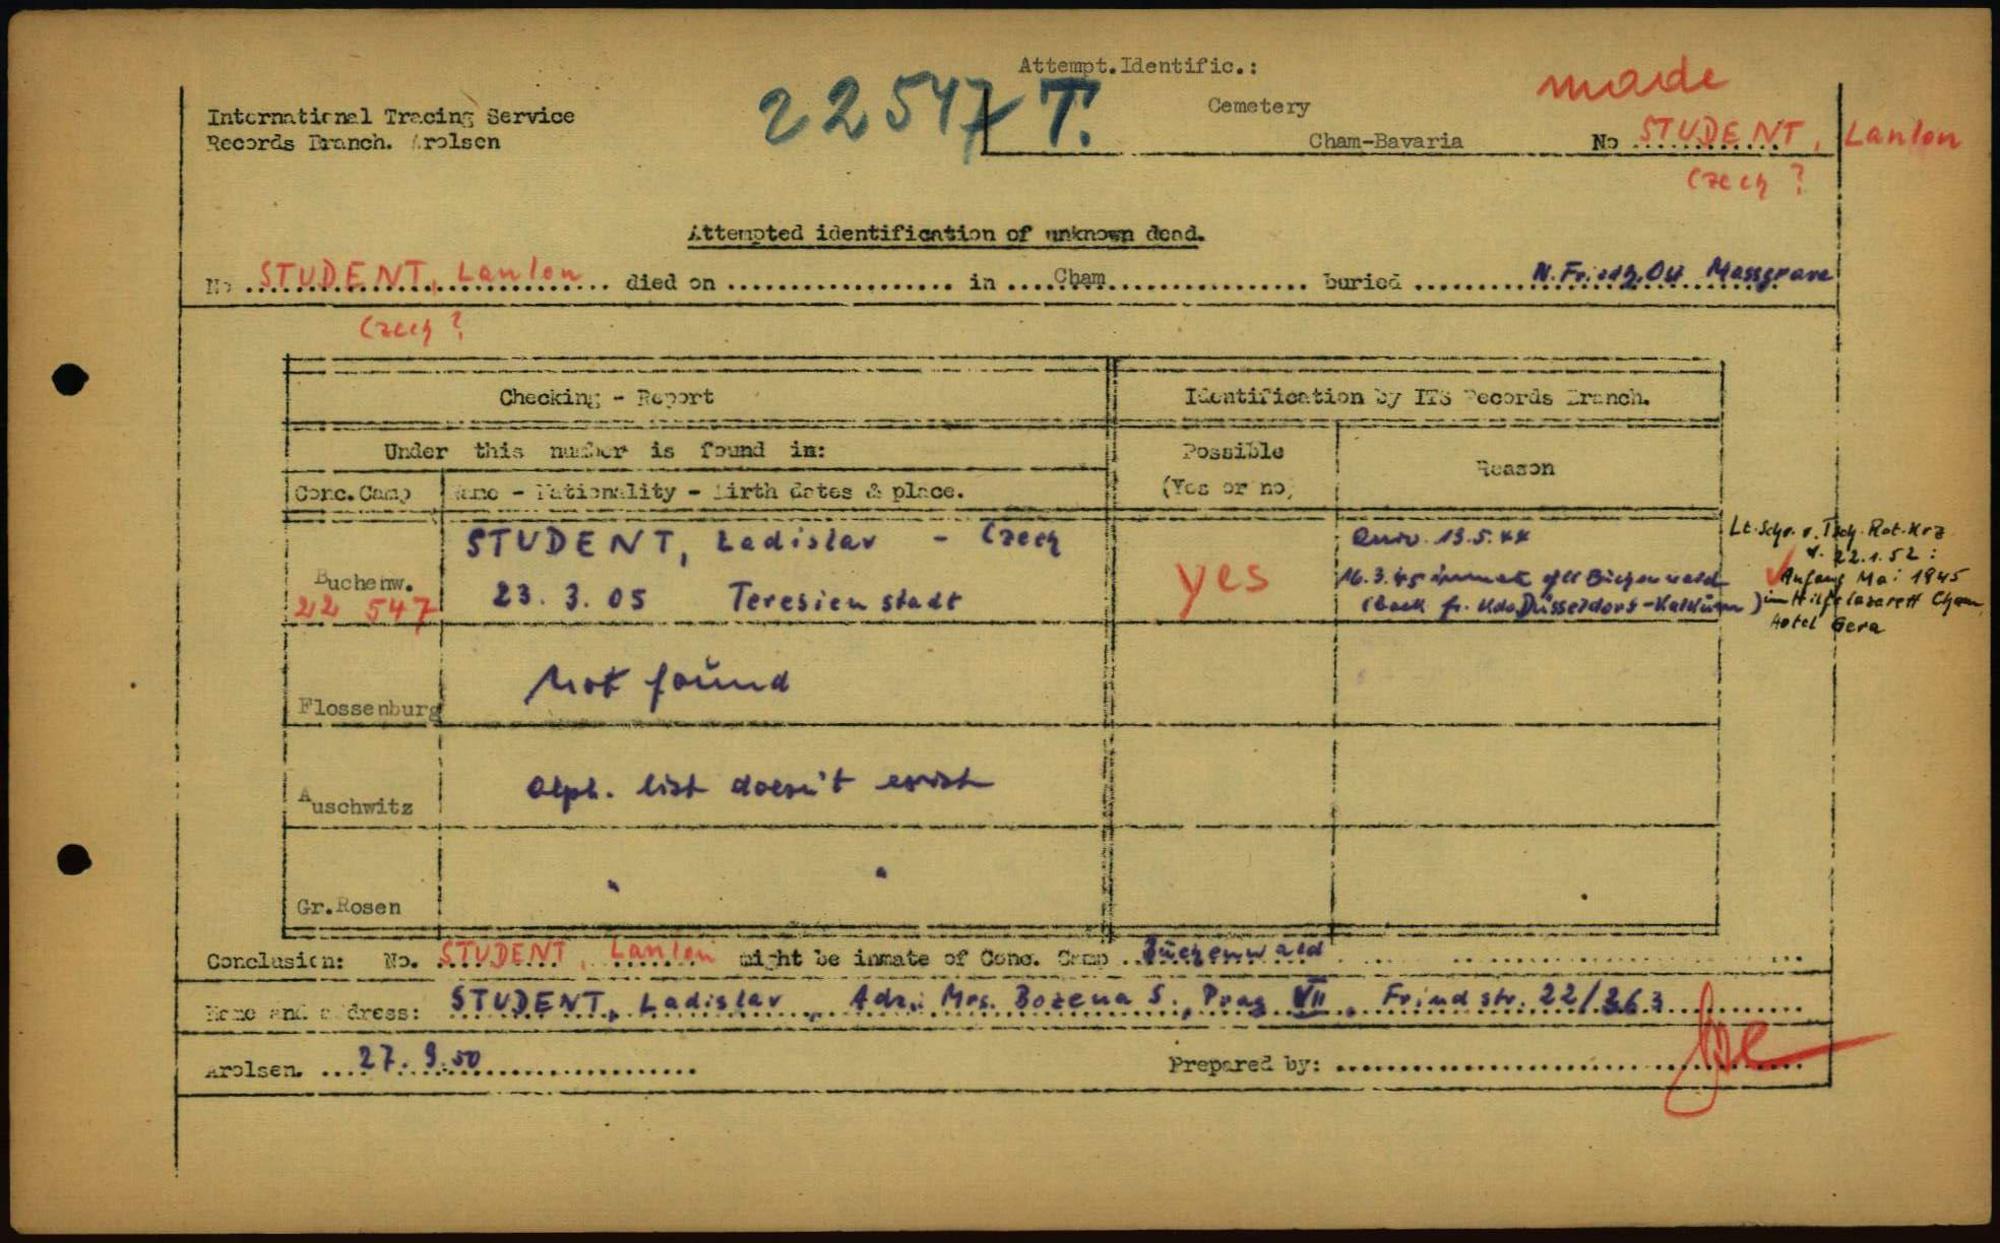 Attempt.Identific.:
made
22547 T.
Cemetery
International Tracing Service
Records Branch. Arolsen
Cham-Bavaria
No STUDENT, Lanlon
Czech ?
Attempted identification of unknown dead.
No STUDENT, Lanlon died on in Cham buried N. Friedh. Ost Massgrave
Czech ?
Checking - Report
Identification by ITS Records Branch.
Under this number is found in:
Possible
(Yes or no)
Reason
Conc.Camp
Name - Nationality - Birth dates & place.
Buchenw.
22 547
STUDENT, Ladislav - Czech
23. 3. 05 Teresienstadt
yes
13.5.44
16.3.45 inmate of CC Buchenwald
(back fr. Kdo Düsseldorf-Kalkum)
Lt. Schr. v. Tsch. Rot. Krz
v. 22.1.52 :
Anfang Mai 1945
im Hilfslazarett Cham,
Hotel Gera
Flossenburg
Not found
Auschwitz
Alph. list doesn't exist
Gr.Rosen
" "
Conclusion: No. STUDENT, Lanlon might be inmate of Conc. Camp Buchenwald
Name and address: STUDENT, Ladislav, Adr.: Mrs. Bozena S., Prag VII, Frindstr. 22/363
Arolsen. 27. 9. 50
Prepared by: